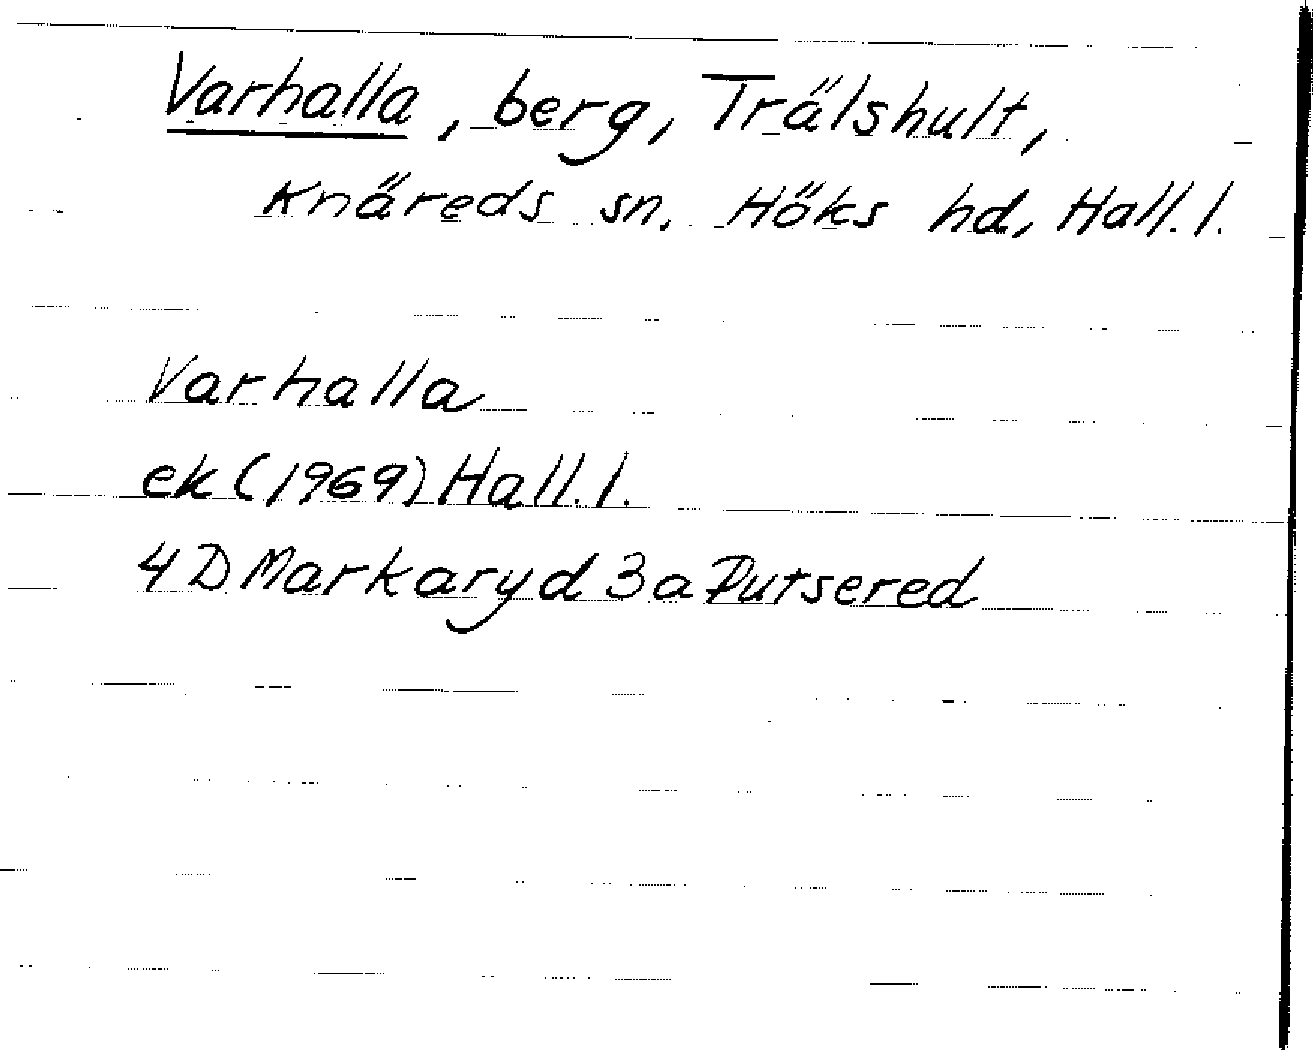 Varhalla, berg, Trälshult,
Knäreds sn. Höks hd, Hall. l.
Varhalla
ek (1969) Hall. l.
4 D Markaryd 3a Putsered